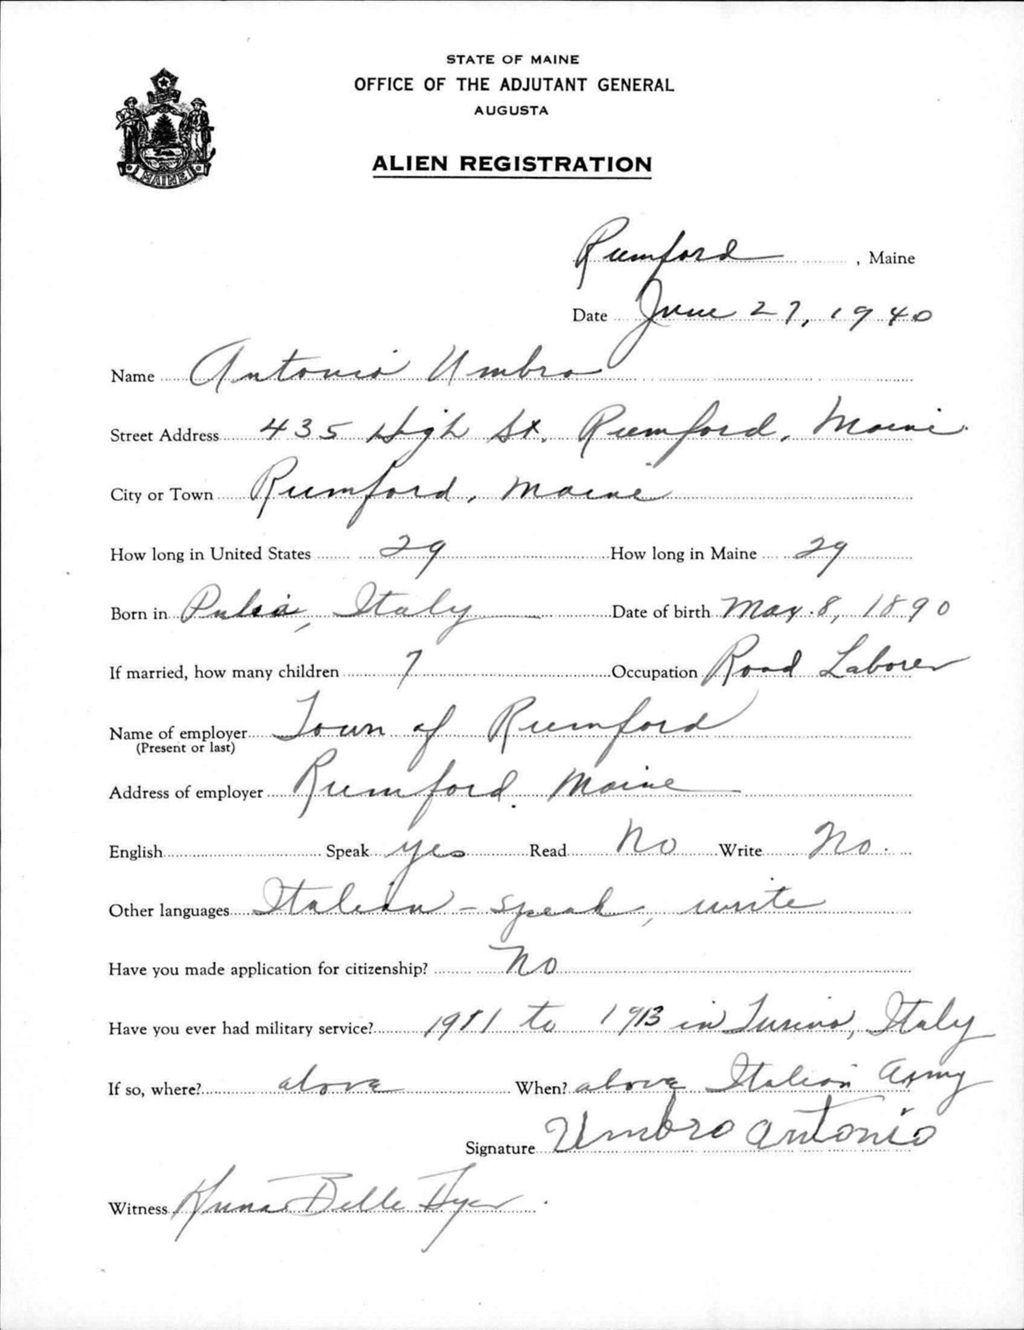 STATE OF MAINE
OFFICE OF THE ADJUTANT GENERAL
AUGUSTA
ALIEN REGISTRATION
MAINE
Rumford, Maine
Date June 27, 1940
Name Antonio Umbro
Street Address 435 High St. Rumford, Maine
City or Town Rumford, Maine
How long in United States 29 How long in Maine 29
Born in Italy Date of birth May 8, 1890
If married, how many children 7 Occupation Road Laborer
Name of employer Town of Rumford
(Present or last)
Address of employer Rumford. Maine
English Speak yes Read No Write No.
Other languages Italian - speak, write
Have you made application for citizenship? No
Have you ever had military service? 1911 to 1913 in Turino, Italy
If so, where? above When? above Italian Army
Signature Umbro Antonio
Witness Belle